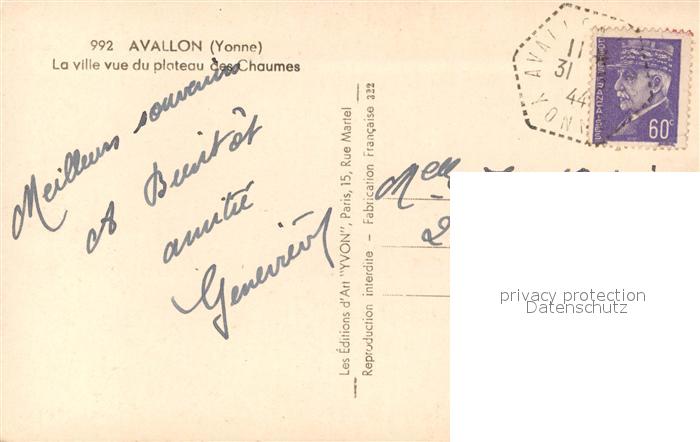 992 AVALLON (Yonne)
La ville vue du plateau des Chaumes
Meilleurs souvenirs
A Bientôt
amitié
Geneviève
Les Éditions d'Art "YVON", Paris, 15, Rue Martel
Reproduction interdite — Fabrication Française 332
AVALLON
11
31
44
YONNE
60c
Melle
2
privacy protection
Datenschutz